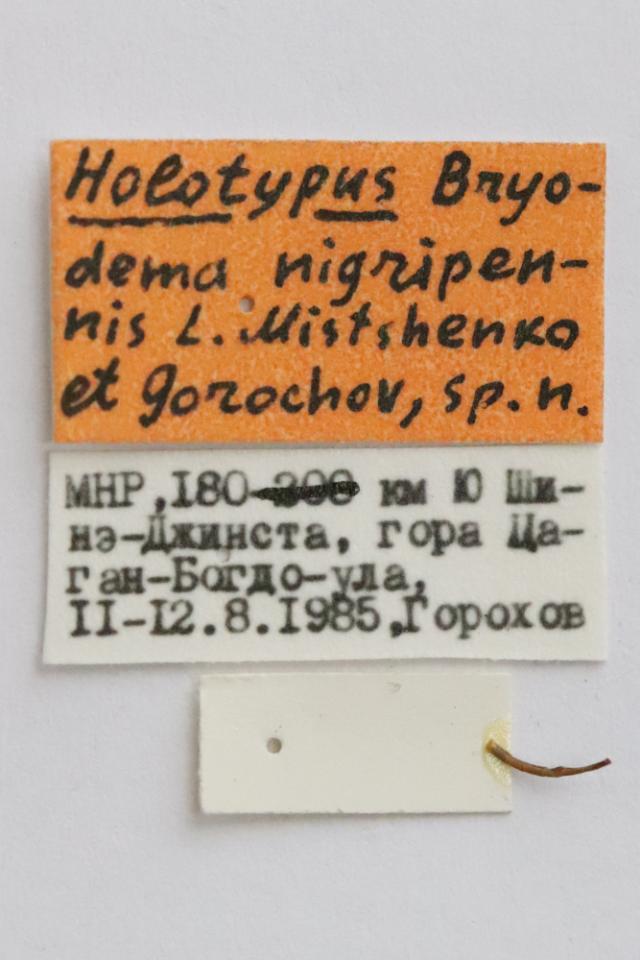 Holotypus Bryo-
dema nigripen-
nis L. Mistshenko
et Gorochov, sp. n.
МНР, I80-200 км Ю Ши-
нэ-Джинста, гора Ца-
ган-Богдо-ула,
II-I2.8.I985, Горохов